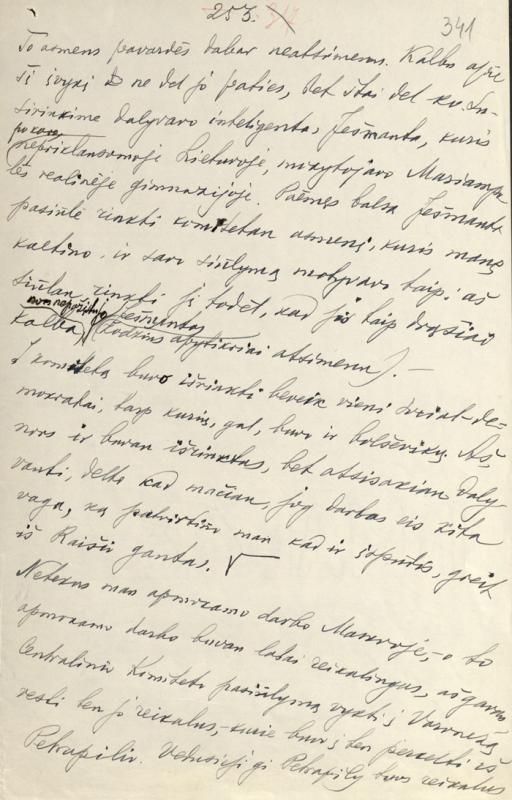 253. 317
341
To asmens pavardės dabar neatsimenu. Kalbu apie
šį įvykį ne dėl jo paties, bet štai dėl ko. Su-
sirinkime dalyvavo inteligentas Ješmanta, kuris
po karo
nepriklausomoje Lietuvoje, mokytojavo Mariampo-
lės realinėje gimnazijoje. Paėmęs balsą Ješmanta
pasiūlė rinkti komitetan asmenį, kuris mane
kaltino, ir savo siūlymą motyvavo taip: aš
siūlau rinkti jį todėl, kad jis taip drąsiai
nors nepažįstu
Ješmantos
kalba (žodžius apytikriai atsimenu). —
Į komitetą buvo išrinkti beveik vieni social-de-
mokratai, tarp kurių, gal, buvo ir bolševikų. Aš,
nors ir buvau išrinktas, bet atsisakiau daly
vauti, dėlto kad mačiau, jog darbas eis kita
vaga, ką patvirtino man kad ir įspūdis, greit
iš Raišių gautas.
Netekus man apmokamo darbo Maskvoje, o to
apmokamo darbo buvau labai reikalingas, aš gavau
Centralinio Komiteto pasiūlymą vykti į Voronežą
vesti ten jo reikalus, – kurie buvo ten perkelti iš
Petrapilio. Vedusieji gi Petrapily tuos reikalus